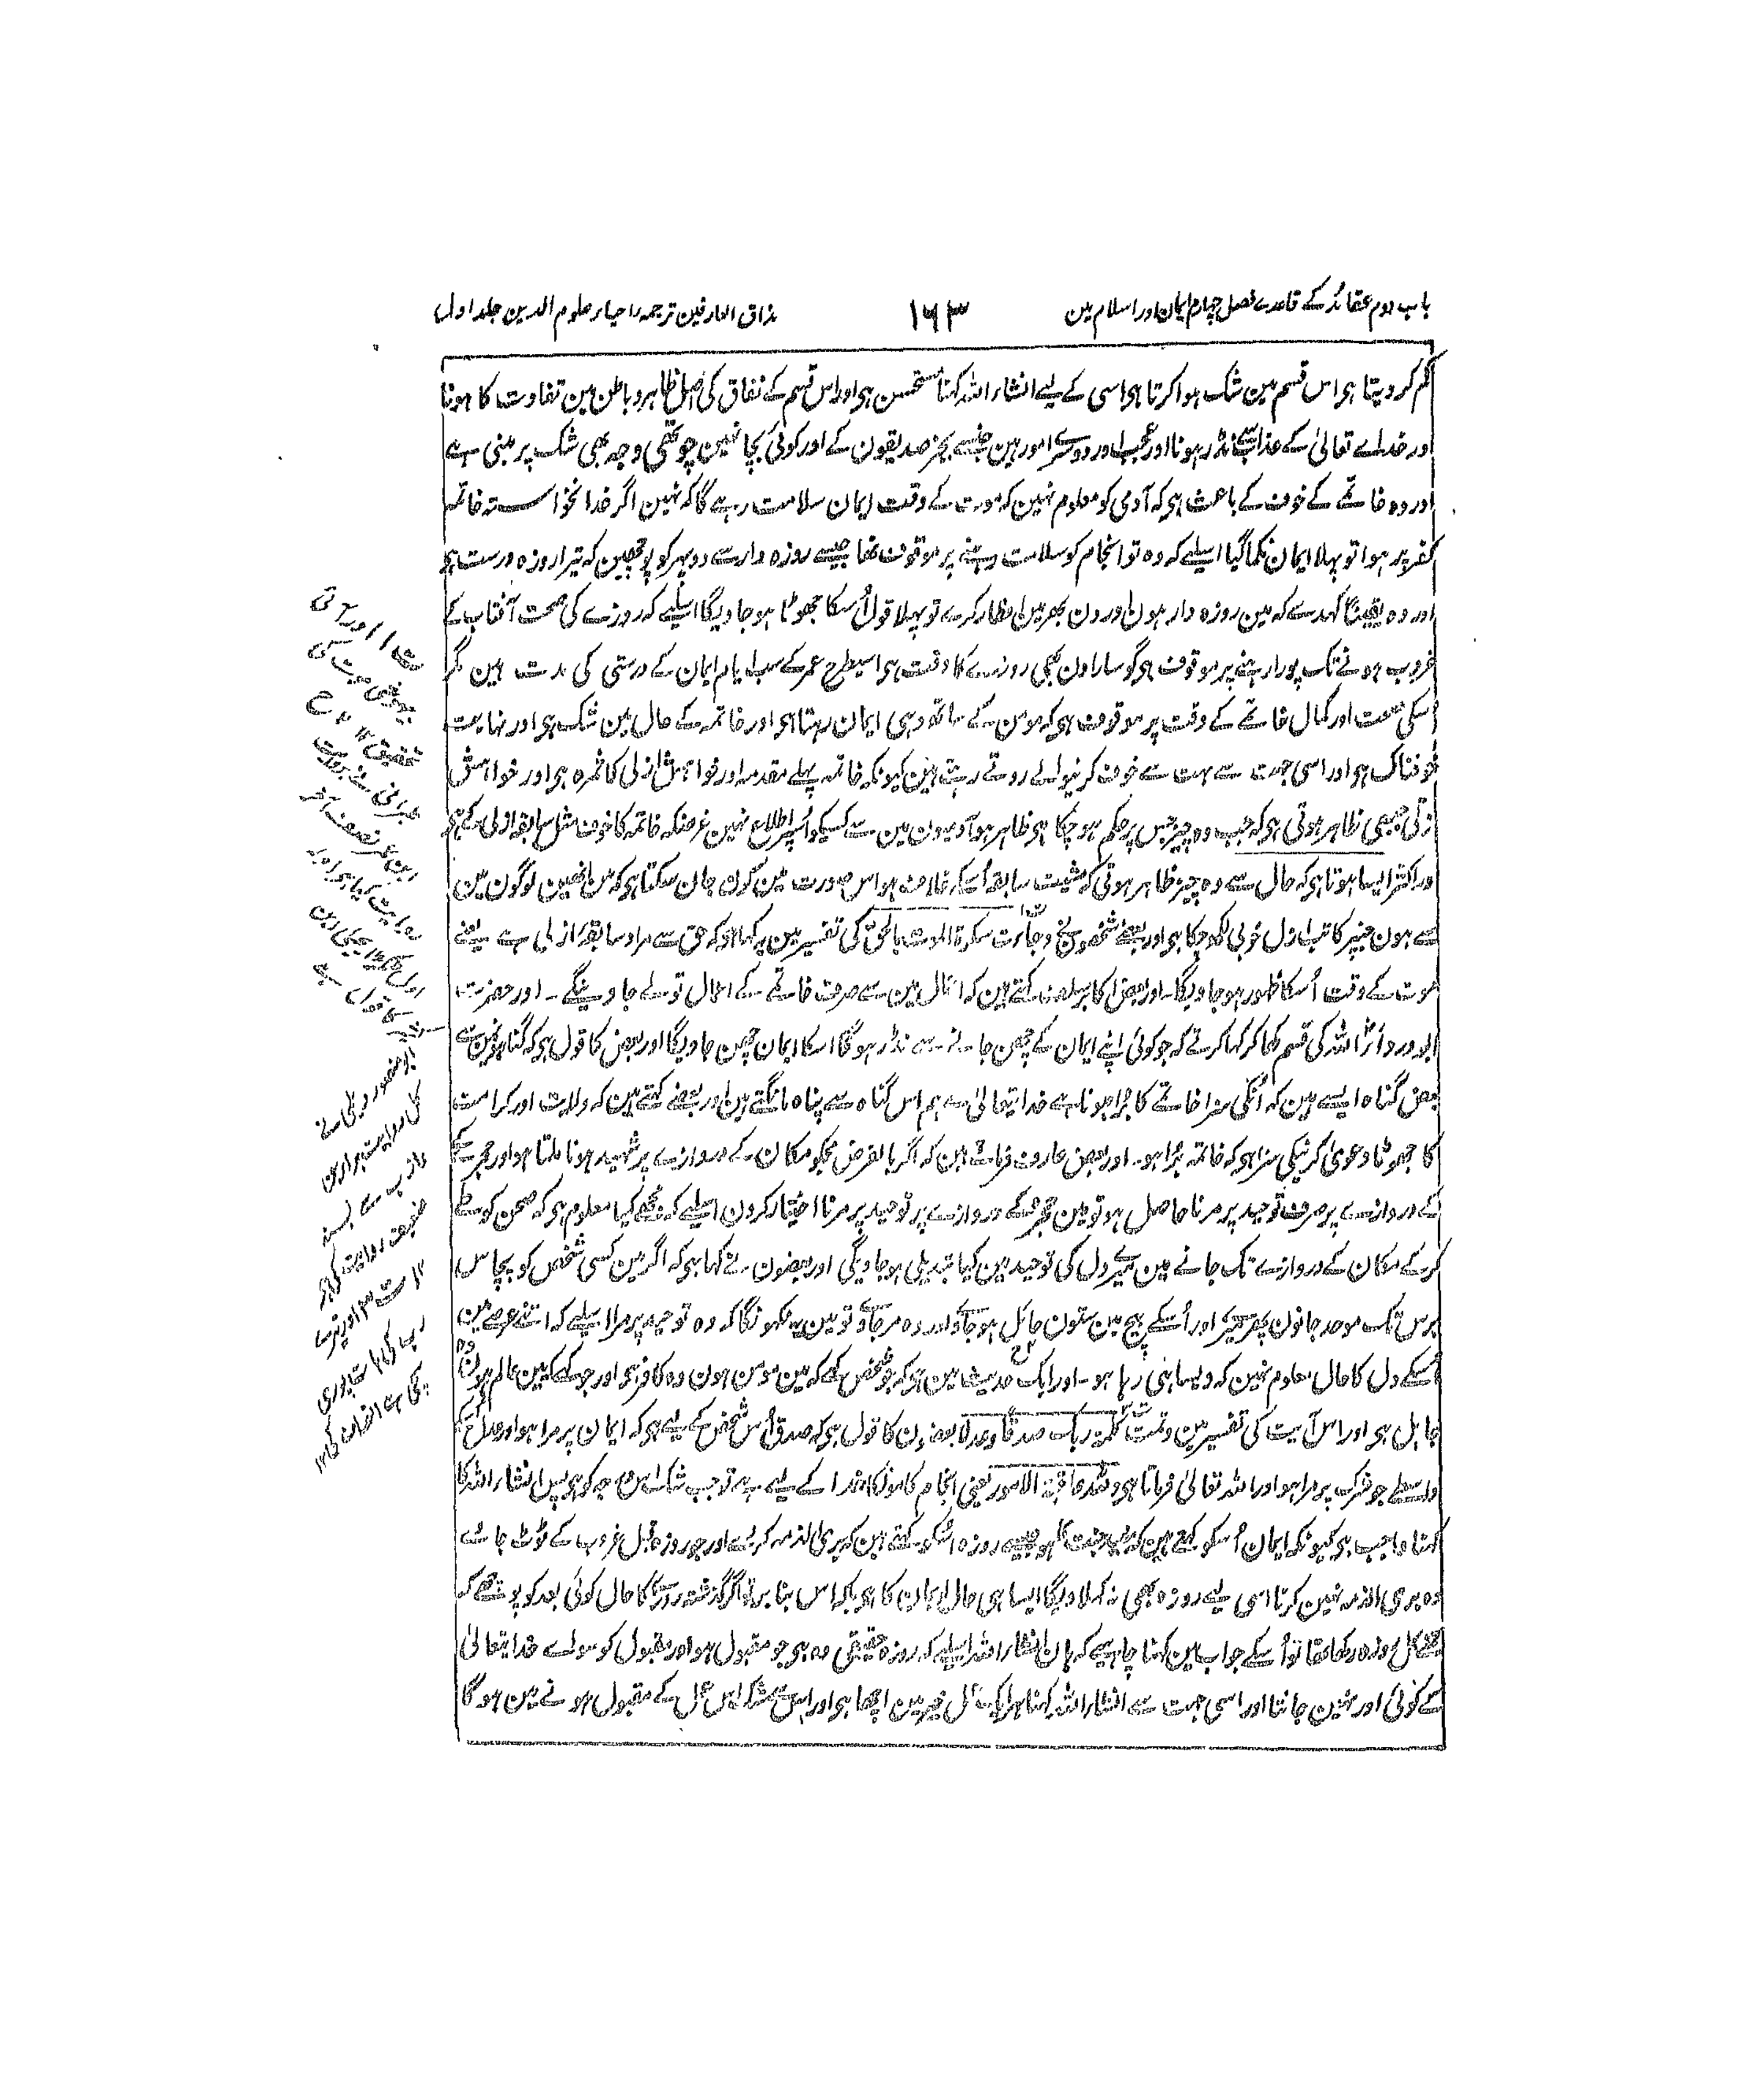 باب دوم عقائد کے قاعدے فصل چہارم ایمان اور اسلام مین
۱۶۳
مذاق العارفین ترجمہ احیاء علوم الدین جلد اول
گم کر دیتا ہی اس قسم مین شک ہوا کرتا ہی اسی کے لیے انشاء اللہ کہنا مستحسن ہی اور اس قسم کے نفاق کی اصل ظاہر و باطن مین تفاوت کا ہونا
اور خداے تعالیٰ کے عذاب سے نڈر ہونا اور عجب اور دوسرے امور ہین جنسے بجز صدیقون کے اور کوئی بچا نہین چوتھی وجہ بھی شک پر مبنی ہے
اور وہ خاتمے کے خوف کے باعث ہی کہ آدمی کو معلوم نہین کہ موت کے وقت ایمان سلامت رہے گا کہ نہین اگر خدا نخواستہ خاتمہ
کفر پر ہوا تو پہلا ایمان نکما گیا اسلیے کہ وہ تو انجام کو سلامت رہنے پر موقوف تھا جیسے روزہ دار سے دوپہر کو پوچھین کہ تیرا روزہ درست ہی
اور وہ یقیناً کہدے کہ مین روزہ دار ہون اور دن بھر مین افطار کرے تو پہلا قول اُسکا جھوٹا ہو جاویگا اسلیے کہ روزے کی صحت آفتاب کے
غروب ہونے تک پورا رہنے پر موقوف ہی گو سارا دن بھی روزے کا وقت ہی اسیطرح عمر کے سب ایام ایمان کے درستی کی مدت ہین مگر
اُسکی صحت اور کمال خاتمے کے وقت پر موقوف ہی کہ مومن کے ساتھ وہی ایمان رہتا ہی اور خاتمہ کے حال مین شک ہی اور نہایت
خوفناک ہی اور اسی جہت سے بہت سے خوف کرنیوالے روتے رہتے ہین کیونکہ خاتمہ پہلے مقدمہ اور خواہش ازلی کا ثمرہ ہی اور خواہش
ازلی جبھی ظاہر ہوتی ہی کہ جب وہ چیز جس پر حکم ہو چکا ہی ظاہر ہو آدمیون مین سے کسیکو اُسپر اطلاع نہین غرضکہ خاتمہ کا خوف مثل سابقہ ازلی کے ہی
اور اکثر ایسا ہوتا ہی کہ حال سے وہ چیز ظاہر ہوتی کہ مشیت سابقہ اُسکے خلاف ہو اس صورت مین کون جان سکتا ہی کہ مین انھین لوگون مین
سے ہون جنپر کاتب ازل خوبی لکھ چکا ہی اور بعضے شخصون نے وجاءت سکرۃ الموت بالحق کی تفسیر مین یہ کہا ہی کہ حق سے مراد سابقہ ازلی ہے یعنے
موت کے وقت اُسکا ظہور ہو جاویگا۔ اور بعض اکابر سلف کہتے ہین کہ اعمال مین سے صرف خاتمے کے اعمال تولے جاوینگے۔ اور حضرت
ابو دردا اللہ کی قسم کھا کر کہا کرتے کہ جو کوئی اپنے ایمان کے چھن جانے سے نڈر ہو گا اسکا ایمان چھن جاویگا اور بعض کا قول ہی کہ گناہون مین سے
بعض گناہ ایسے ہین کہ اُنکی سزا خاتمے کا برا ہونا ہے خدایتعالیٰ سے ہم اس گناہ سے پناہ مانگتے ہین اور بعضے کہتے ہین کہ ولایت اور کرامت
کا جھوٹا دعویٰ کرنیکی سزا ہی کہ خاتمہ برا ہو۔ اور بعض عارف فرماتے ہین کہ اگر بالفرض مجکو مکان کے دروازے پر شہید ہونا ملتا ہو اور حجرے
کے دروازے پر صرف توحید پر مرنا حاصل ہو تو مین حجرے کے دروازے پر توحید پر مرنا اختیار کرون اسلیے کہ مجھے کیا معلوم ہی کہ صحن کو طے
کر کے مکان کے دروازے تک جانے مین میرے دل کی توحید مین کیا تبدیلی ہو جاویگی اور بعضون نے کہا ہی کہ اگر مین کسی شخص کو پچاس
برس تک موحد جانون پھر میرے اور اُسکے بیچ مین ستون حائل ہو جاوے اور وہ مر جاوے تو مین یہ نکہونگا کہ وہ توحید پر مرا اسلیے کہ اتنے عرصے مین
اُسکے دل کا حال معلوم نہین کہ ویسا ہی رہا ہو۔ اور ایک حدیث مین ہی کہ جو شخص کہے کہ مین مومن ہون وہ کافر ہی اور جو کہے کہ مین عالم ہون وہ
جاہل ہی اور اس آیت کی تفسیر مین وتمت کلمۃ ربک صدقا وعدلا بعضون کا قول ہی کہ صدق اُس شخص کے لیے ہی کہ ایمان پر مرا ہو اور عدل اُسکے
واسطے جو شرک پر مرا ہو اور اللہ تعالیٰ فرماتا ہی وللہ عاقبۃ الامور یعنی انجام کامونکا خدا کے لیے ہے تو جب شک اس وجہ کو ہی پس انشاء اللہ کا
کہنا واجب ہی کیونکہ ایمان اُسکو کہتے ہین کہ مفید جنت کو ہو جیسے روزہ اُسکو کہتے ہین کہ بری الذمہ کر دے اور جو روزہ قبل غروب کے ٹوٹ جائے
وہ بری الذمہ نہین کرتا اسی لیے روزہ بھی نہ کہلاویگا ایسا ہی حال ایمان کا ہی بلکہ اس بنا پر تو اگر گذشتہ روزے کا حال کوئی بعد کو پوچھے کہ
تمنے کل روزہ رکھا تھا تو اُسکے جواب مین کہنا چاہیے کہ ہان انشاء اللہ اسلیے کہ روزہ حقیقی وہ ہی جو مقبول ہو اور مقبول کو سواے خدایتعالیٰ
کے کوئی اور نہین جانتا اور اسی جہت سے انشاء اللہ کہنا ہر ایک عمل خیر مین اچھا ہی اور اس مین شک اس عمل کے مقبول ہونے مین ہو گا
ت ۱ اور آئی
بیہوشی موت کی
تحقیق ۱۲ ح
طبرانی نے بروایت
ابن عمر نصف آخر
روایت کیا ہی اور
اول ٹکڑا یحیی بن
کثیر کا قول ہے
ابو منصور دیلمی نے
کل روایت براء بن
عازب سے بسند
ضعیف روایت کی ہی
۱۲ ت ۳ اور تیرے
رب کی بات پوری
سچی ہے انصاف کی ۱۲